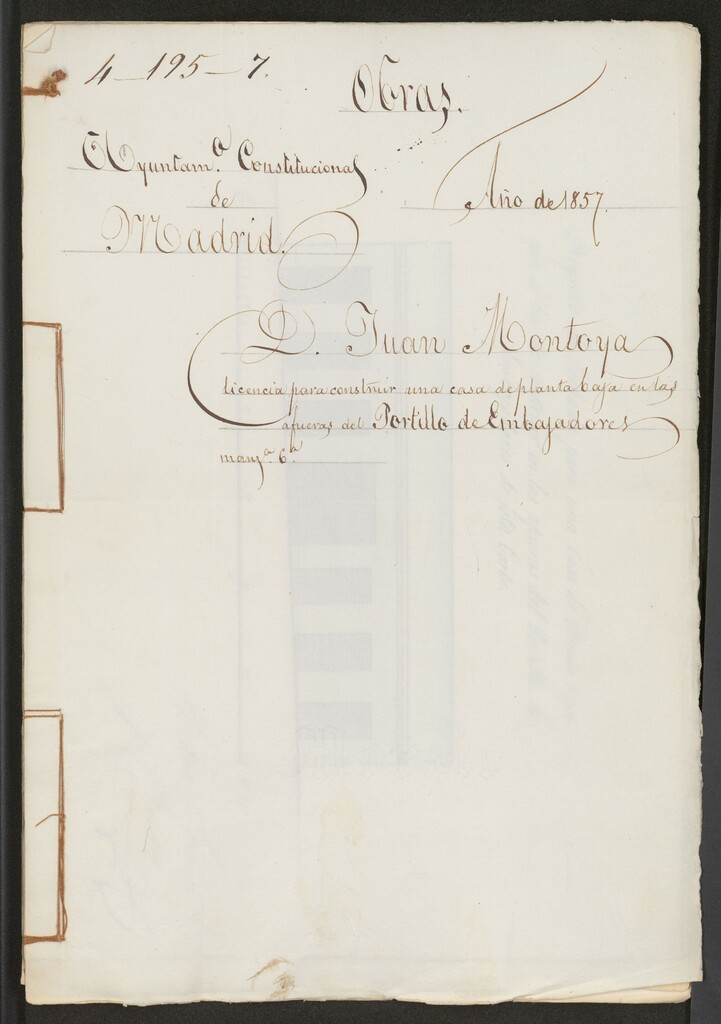 4-195-7.
Obras.
Ayuntam.º Constitucional
de
Madrid.
Año de 1857.
D. Juan Montoya
licencia para construir una casa de planta baja en las
afueras del Portillo de Embajadores
manz.ª 6.ª